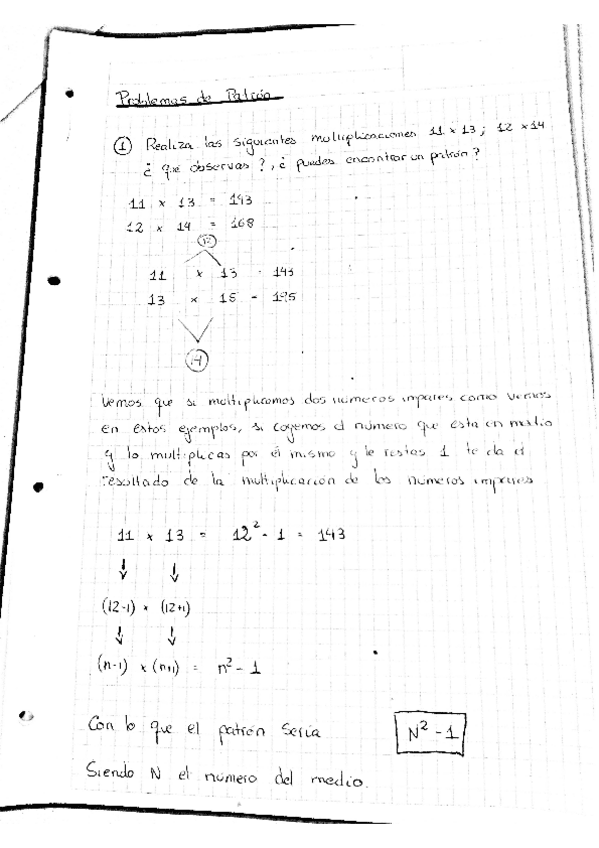 Problemas de Patrón
① Realiza las siguientes multiplicaciones 11 x 13 ; 12 x 14
¿ qué observas ? , ¿ puedes encontrar un patrón ?
11 x 13 = 143
12 x 14 = 168
12
11 x 13 = 143
13 x 15 = 195
14
Vemos que si multiplicamos dos números impares como vemos
en estos ejemplos, si cogemos el número que esta en medio
y lo multiplicas por él mismo y le restas 1 te da el
resultado de la multiplicación de los números impares
11 x 13 = 12² - 1 = 143
(12-1) x (12+1)
(n-1) x (n+1) = n² - 1
Con lo que el patrón sería N² - 1
Siendo N el número del medio.